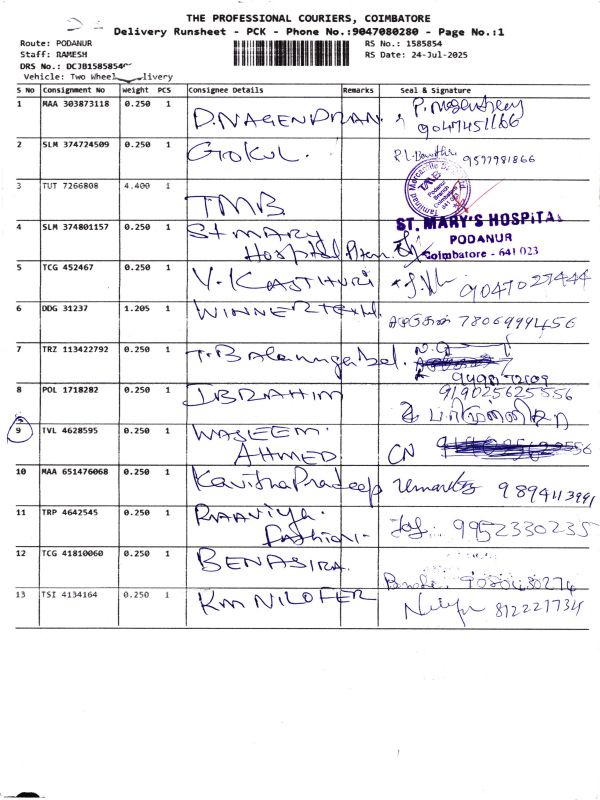 THE PROFESSIONAL COURIERS, COIMBATORE
Delivery Runsheet - PCK - Phone No.:9047080280 - Page No.:1
Route: PODANUR
RS No.: 1585854
Staff: RAMESH
RS Date: 24-Jul-2025
DRS No.: DCJB1585854
Vehicle: Two Wheel livery
S No Consignment No Weight PCS Consignee Details Remarks Seal & Signature
1 MAA 303873118 0.250 1 D.NAGENDRAN
9047451166
2 SLM 374724509 0.250 1 GOKUL. 9577981866
3 TUT 7266808 4.400 1 TMB
Tamilnad Mercantile
TMB
Podanur
Branch
Coimbatore
4 SLM 374801157 0.250 1 St MARY
Hospital
ST. MARY'S HOSPITAL
PODANUR
Coimbatore - 641 023
5 TCG 452467 0.250 1 V. KASTHURI 9047027444
6 DDG 31237 1.205 1 WINNER 7806999456
7 TRZ 113422792 0.250 1 T.
8 POL 1718282 0.250 1 IBRAHIM 919025625556
9 TVL 4628595 0.250 1 WASEEM. CN
AHMED
10 MAA 651476068 0.250 1 Kavitha Pradeep 9894113991
11 TRP 4642545 0.250 1 9952330235
Fashion-
12 TCG 41810060 0.250 1 BENASIRA. 9080430274
13 TSI 4134164 0.250 1 KM NILOFER 812221734